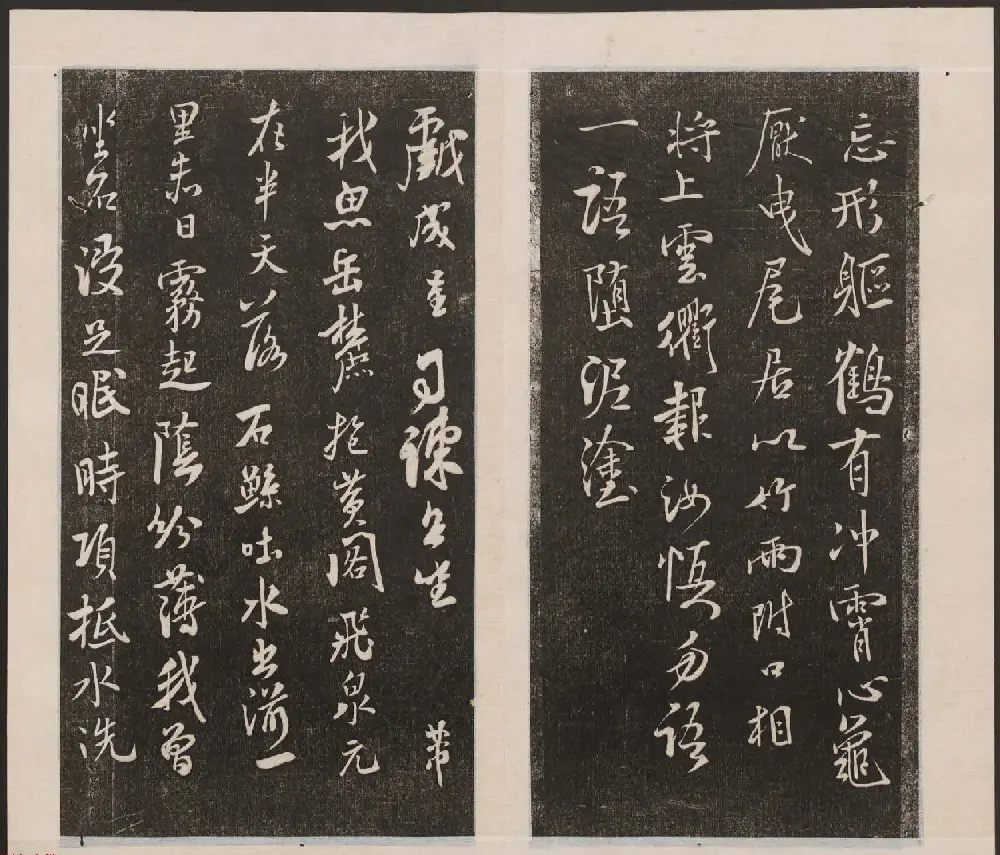 忘形軀鶴有冲霄心龜
厭曳尾居以竹兩附口相
將上雲衢報汝慎勿語
一語墮泥塗
戲成呈司諫台坐 芾
我思岳麓抱黃閣飛泉元
在半天落石鯨吐水出湔一
里赤日霧起陰紛薄我曾
坐石浸足眠時項抵水洗